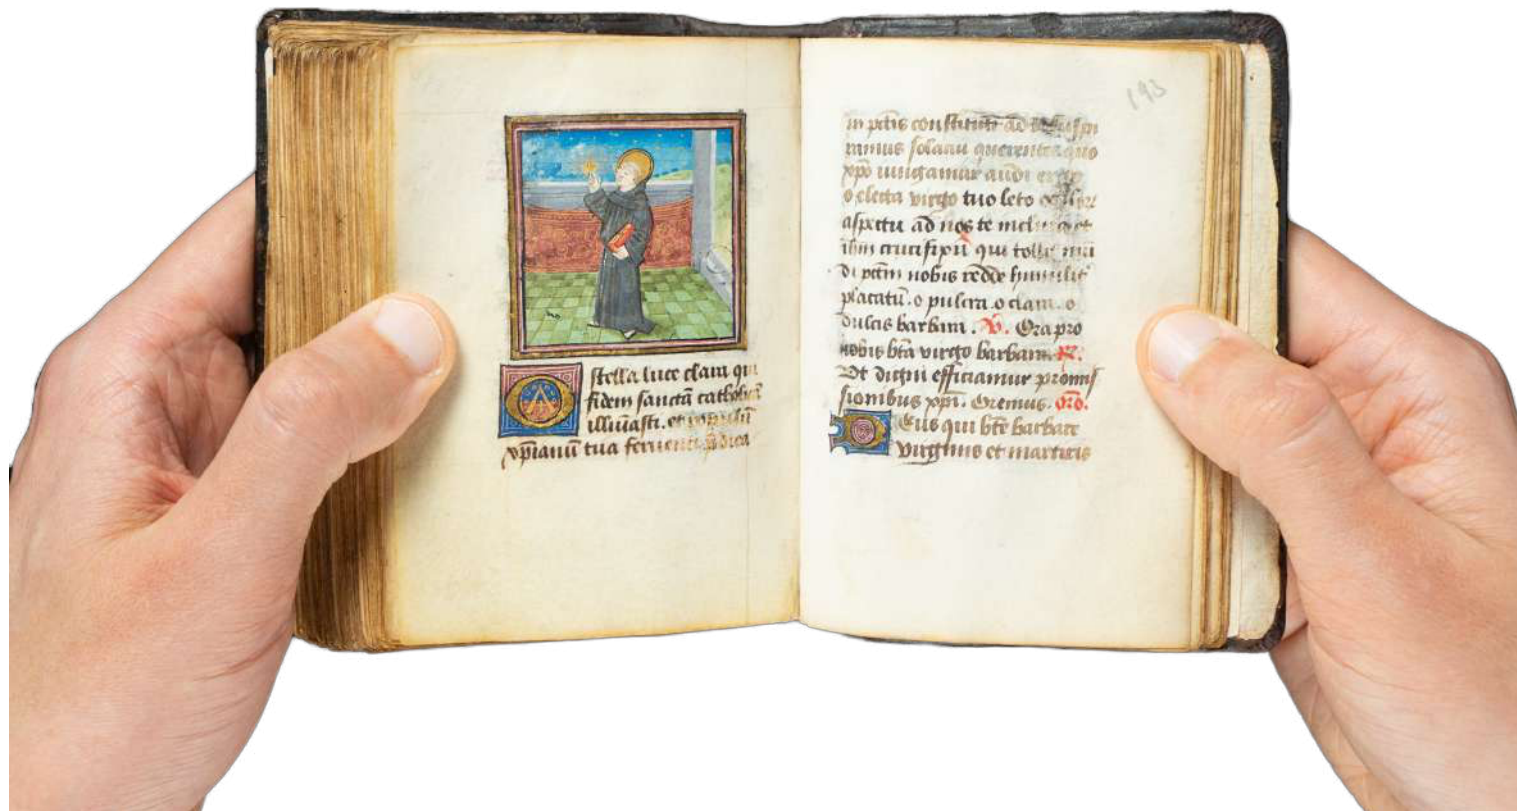 O stella luce clara qui
fidem sanctā catholicā
illūasti. et populū
xpīanū tua feruenti p̄dica
193
in pctīs constituti ad te suspi
ramus solaciū querentes quo
xpō iungamur audi ergo
o electa virgo tuo leto
aspectu ad nos te inclina et
ihm crucifixū qui tollit mū
di pctm nobis redde humilit̄
placatū. o pulcra. o clara. o
dulcis barbara. V. Ora pro
nobis btā virgo barbara. R.
Vt digni efficiamur promis
sionibus xpī. Oremus. Orō.
Deus qui btē barbare
virginis et martiris